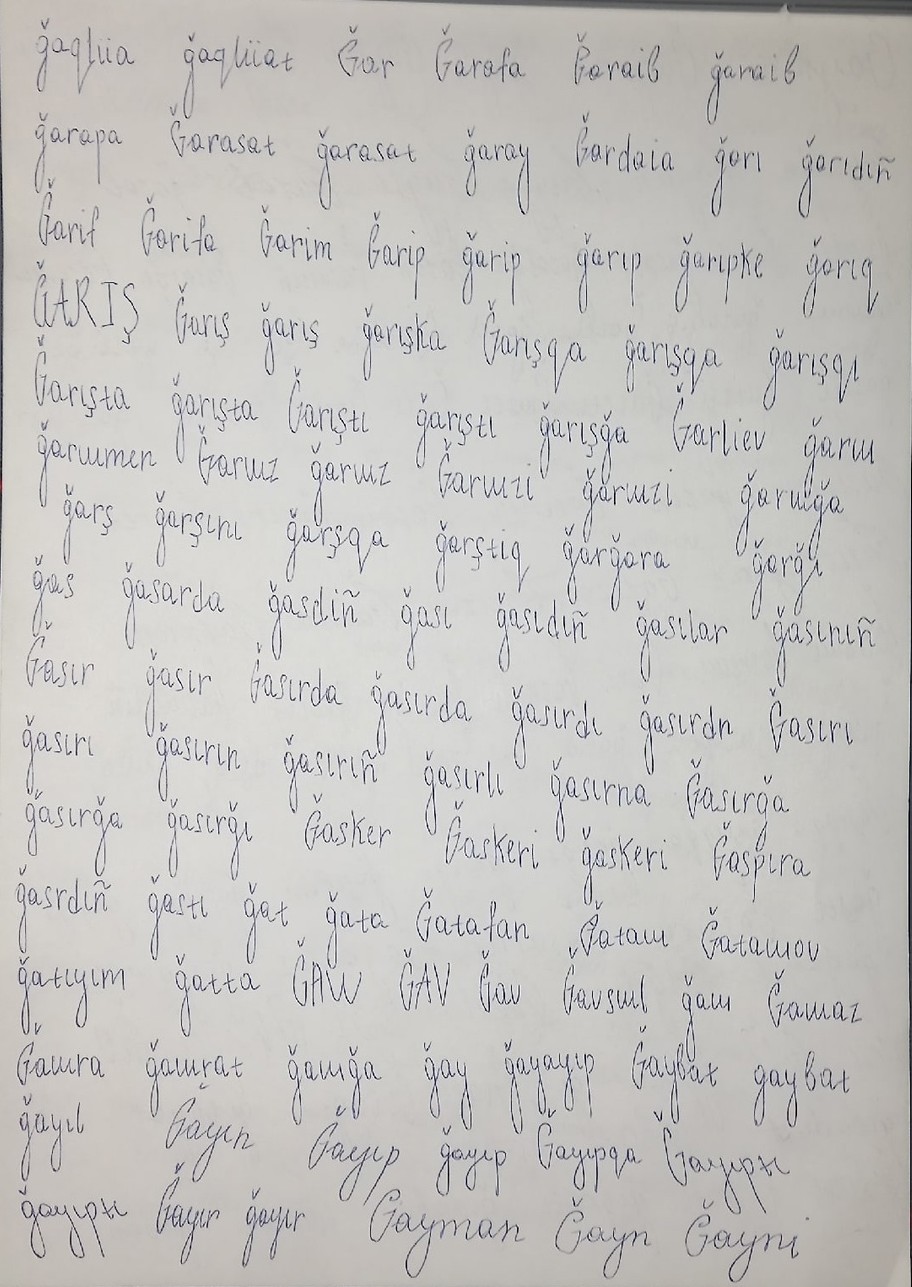 ğaqlüa ğaqlüat Ğar Ğarafa Ğaraib ğaraib
ğarapa Ğarasat ğarasat ğaray Ğardaia ğarı ğarıdıñ
Ğarif Ğarifa Ğarim Ğarip ğarip ğarıp ğarıpke ğarıq
ĞARIŞ Ğarış ğarış ğarışka Ğarışqa ğarışqa ğarışqı
Ğarışta ğarışta Ğarıştı ğarıştı ğarışğa Ğarliev ğarıw
ğarwmen Ğarwz ğarwz Ğarwzi ğarwzi ğarwğa
ğarş ğarşını ğarşqa ğarştiq ğarğara ğarğı
ğas ğasarda ğasdiñ ğası ğasıdıñ ğasılar ğasınıñ
Ğasır ğasır Ğasırda ğasırda ğasırdı ğasırdn Ğasırı
ğasırı ğasırın ğasırıñ ğasırlı ğasırna Ğasırğa
ğasırğa ğasırğı Ğasker Ğaskeri ğaskeri Ğaspıra
ğasrdıñ ğastı ğat ğata Ğatafan Ğataw Ğatawov
ğatıyım ğatta ĞAW ĞAV Ğav Ğavşwl ğaw Ğawaz
Ğawra ğawrat ğawğa ğay ğayayıp Ğaybat ğaybat
ğayıl Ğayın Ğayıp ğayıp Ğayıpqa Ğayıpxı
ğayıpxı Ğayır ğayır Ğayman Ğayn Ğayni